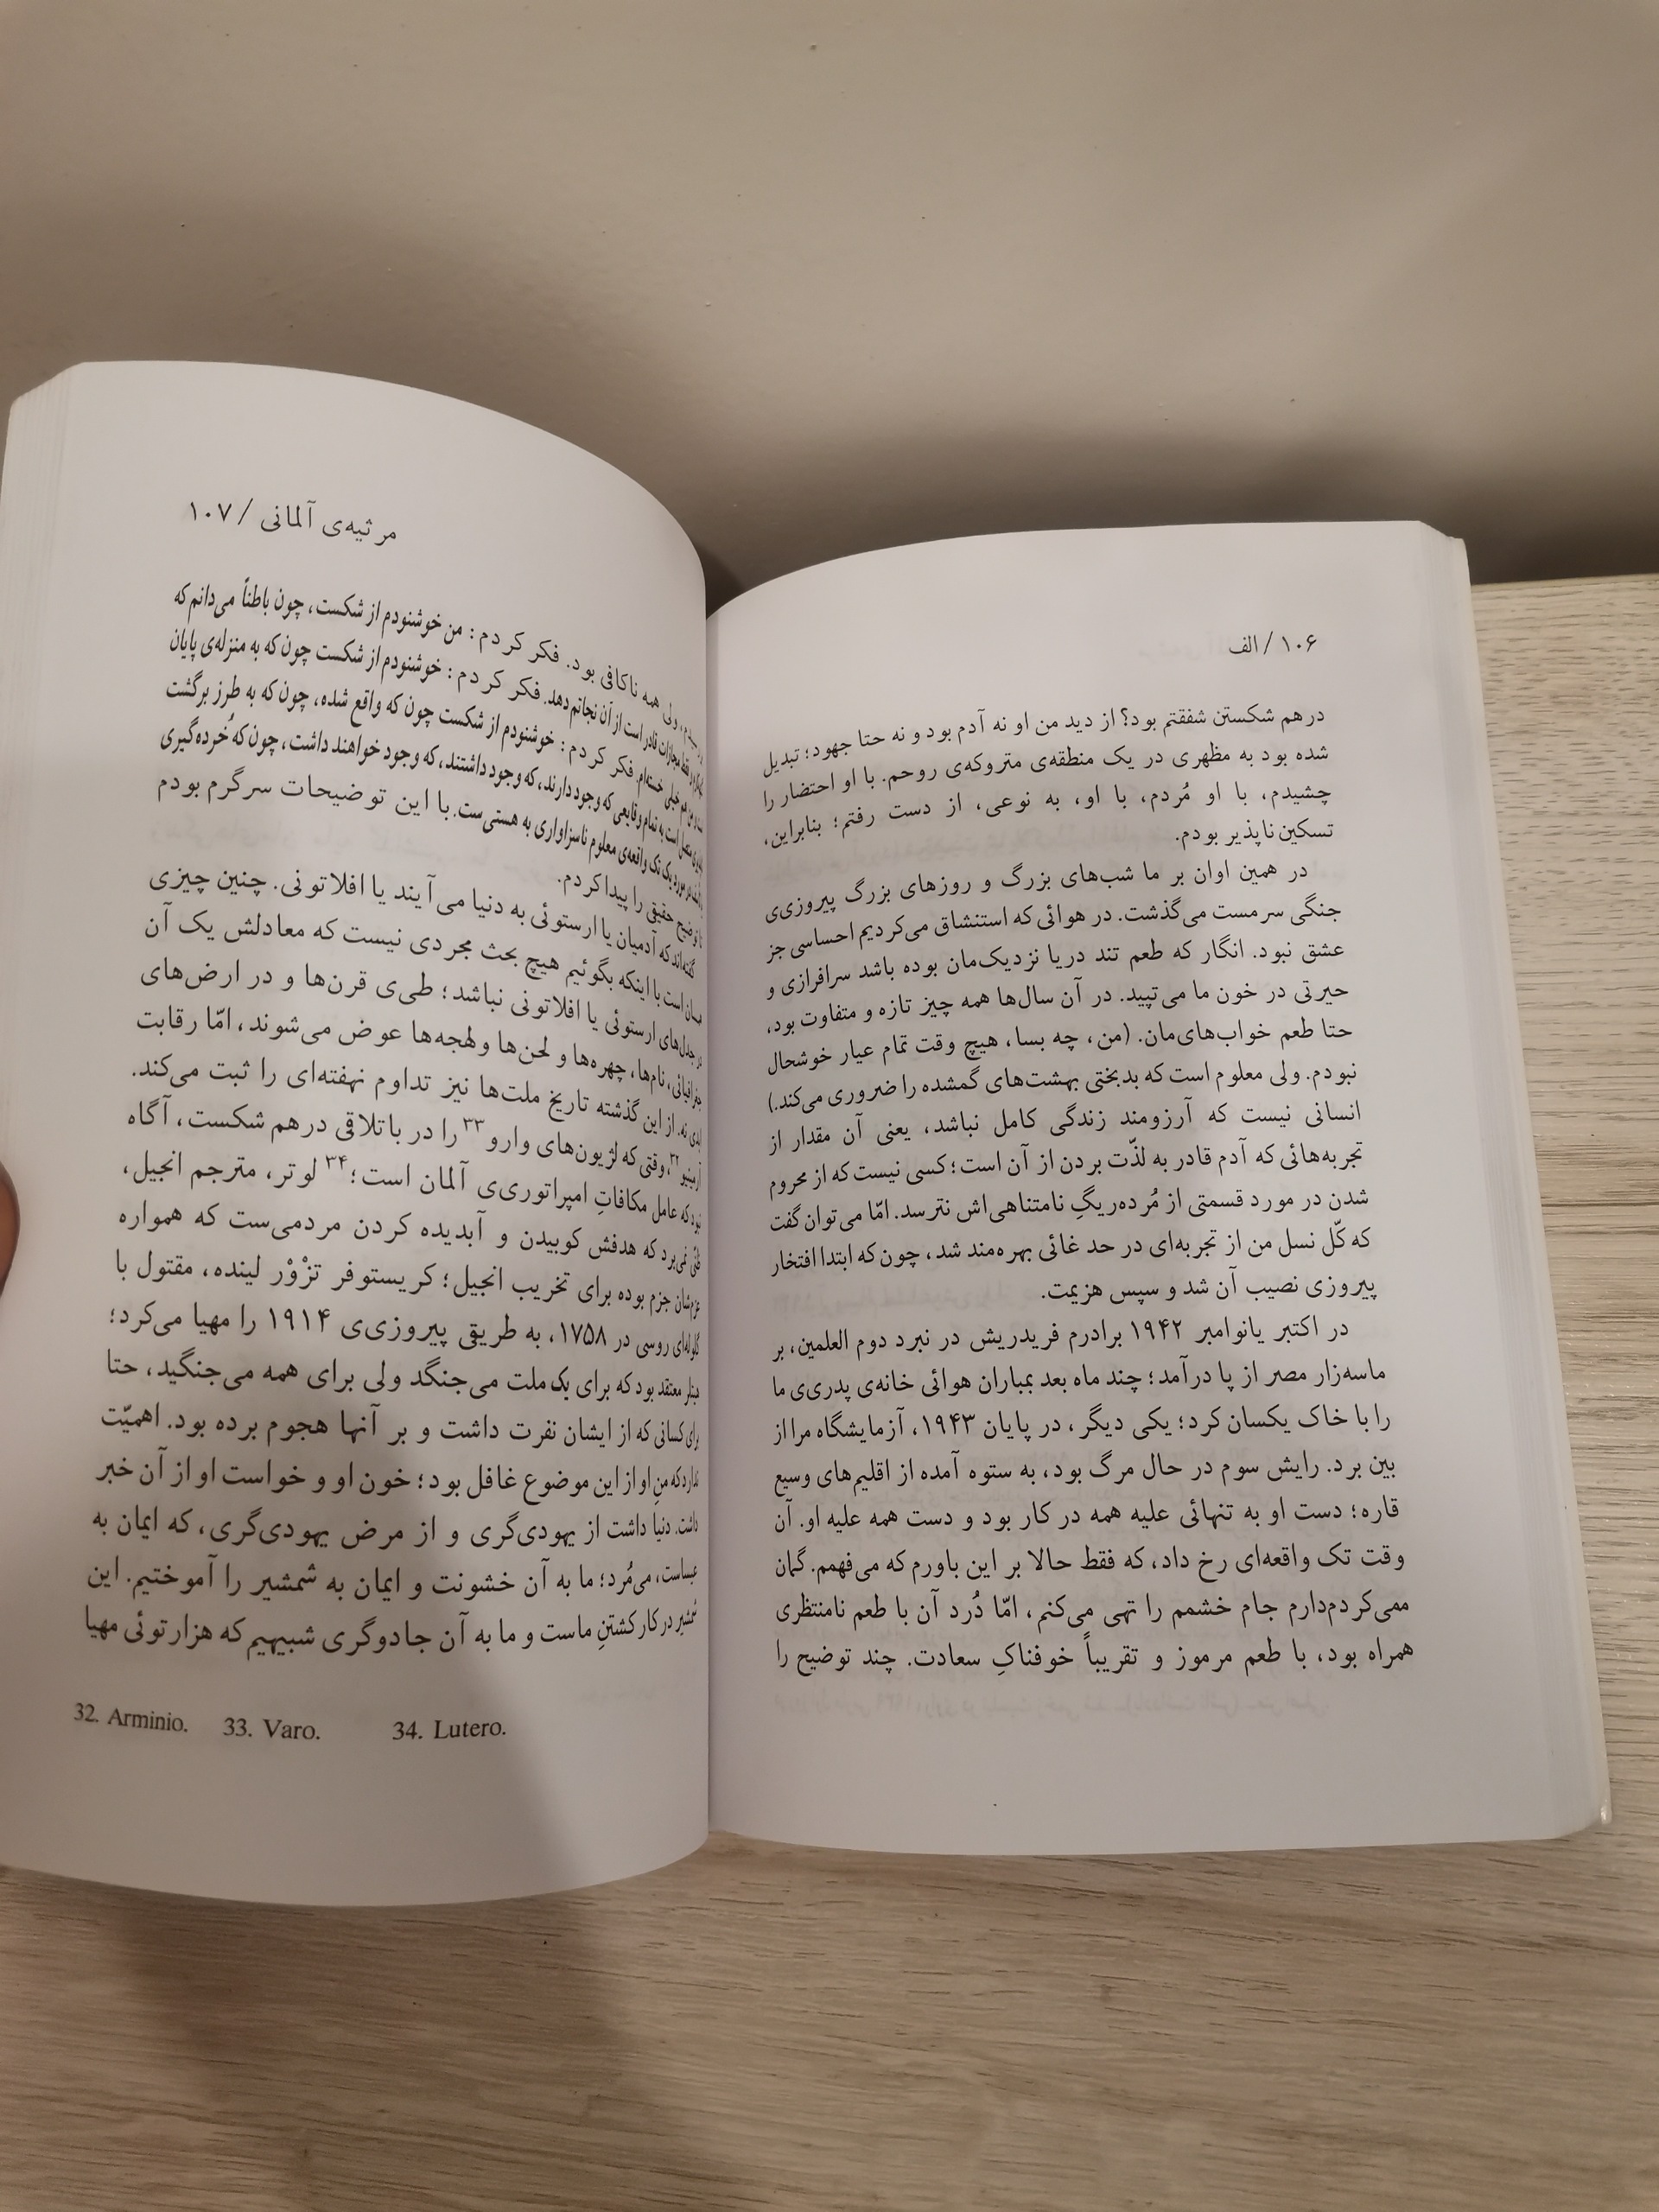 ۱۰۶ / الف
درهم شکستن شفقتم بود؟ از دید من او نه آدم بود و نه حتا جهود؛ تبدیل
شده بود به مظهری در یک منطقه‌ی متروکه‌ی روحم. با او احتضار را
چشیدم، با او مُردم، با او، به نوعی، از دست رفتم؛ بنابراین،
تسکین‌ناپذیر بودم.
در همین اوان بر ما شب‌های بزرگ و روزهای بزرگ پیروزی‌ی
جنگی سرمست می‌گذشت. در هوائی که استنشاق می‌کردیم احساسی جز
عشق نبود. انگار که طعم تند دریا نزدیک‌مان بوده باشد سرافرازی و
حیرتی در خون ما می‌تپید. در آن سال‌ها همه چیز تازه و متفاوت بود،
حتا طعم خواب‌های‌مان. (من، چه بسا، هیچ وقت تمام عیار خوشحال
نبودم. ولی معلوم است که بدبختی بهشت‌های گمشده را ضروری می‌کند.)
انسانی نیست که آرزومند زندگی کامل نباشد، یعنی آن مقدار از
تجربه‌هائی که آدم قادر به لذّت بردن از آن است؛ کسی نیست که از محروم
شدن در مورد قسمتی از مُرده‌ریگِ نامتناهی‌اش نترسد. امّا می‌توان گفت
که کلّ نسل من از تجربه‌ای در حد غائی بهره‌مند شد، چون که ابتدا افتخار
پیروزی نصیب آن شد و سپس هزیمت.
در اکتبر یا نوامبر ۱۹۴۲ برادرم فریدریش در نبرد دوم العلمین، بر
ماسه‌زار مصر از پا درآمد؛ چند ماه بعد بمباران هوائی خانه‌ی پدری‌ی ما
را با خاک یکسان کرد؛ یکی دیگر، در پایان ۱۹۴۳، آزمایشگاه مرا از
بین برد. رایش سوم در حال مرگ بود، به ستوه آمده از اقلیم‌های وسیع
قاره؛ دست او به تنهائی علیه همه در کار بود و دست همه علیه او. آن
وقت تک واقعه‌ای رخ داد، که فقط حالا بر این باورم که می‌فهمم. گمان
ممی‌کردم‌دارم جام خشمم را تهی می‌کنم، امّا دُرد آن با طعم نامنتظری
همراه بود، با طعم مرموز و تقریباً خوفناکِ سعادت. چند توضیح را
مرثیه‌ی آلمانی / ۱۰۷
ولی همه ناکافی بود. فکر کردم: من خوشنودم از شکست، چون باطناً می‌دانم که
مجازات قادر است از آن نجاتم دهد. فکر کردم: خوشنودم از شکست چون که به منزله‌ی پایان
خیلی خسته‌ام. فکر کردم: خوشنودم از شکست چون که واقع شده، چون که به طرز برگشت
است به تمام وقایعی که وجود دارند، که وجود داشتند، که وجود خواهند داشت، چون که خُرده‌گیری
یک تک واقعه‌ی معلوم ناسزاواری به هستی‌ست. با این توضیحات سرگرم بودم
تا توضیح حقیقی را پیدا کردم.
گفته‌اند که آدمیان یا ارستوئی به دنیا می‌آیند یا افلاتونی. چنین چیزی
است با اینکه بگوئیم هیچ بحث مجردی نیست که معادلش یک آن
در جدل‌های ارستوئی یا افلاتونی نباشد؛ طی‌ی قرن‌ها و در ارض‌های
جغرافیائی، نام‌ها، چهره‌ها و لحن‌ها و لهجه‌ها عوض می‌شوند، امّا رقابت
ابدی نه. از این گذشته تاریخ ملت‌ها نیز تداوم نهفته‌ای را ثبت می‌کند.
آرمینیو۳۲، وقتی که لژیون‌های وارو۳۳ را در باتلاقی درهم شکست، آگاه
نبود که عامل مکافاتِ امپراتوری‌ی آلمان است؛ لوتر۳۴، مترجم انجیل،
ظنّ نمی‌برد که هدفش کوبیدن و آبدیده کردن مردمی‌ست که همواره
عزم‌شان جزم بوده برای تخریب انجیل؛ کریستوفر تزْوْر لینده، مقتول با
گلوله‌ای روسی در ۱۷۵۸، به طریقی پیروزی‌ی ۱۹۱۴ را مهیا می‌کرد؛
هیتلر معتقد بود که برای یک ملت می‌جنگد ولی برای همه می‌جنگید، حتا
برای کسانی که از ایشان نفرت داشت و بر آنها هجوم برده بود. اهمیّت
ندارد که منِ او از این موضوع غافل بود؛ خون او و خواست او از آن خبر
داشت. دنیا داشت از یهودی‌گری و از مرض یهودی‌گری، که ایمان به
عیساست، می‌مُرد؛ ما به آن خشونت و ایمان به شمشیر را آموختیم. این
شمشیر در کار کشتنِ ماست و ما به آن جادوگری شبیهیم که هزارتوئی مهیا
32. Arminio. 33. Varo. 34. Lutero.